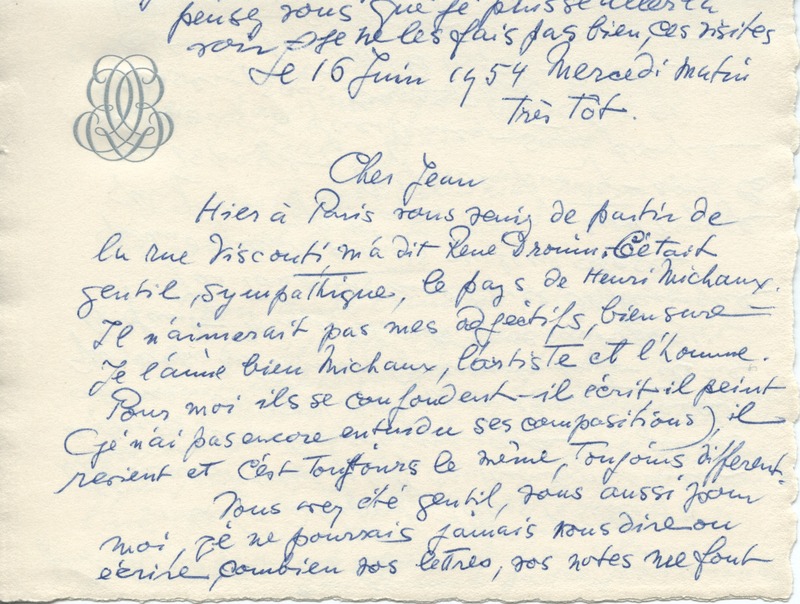 pensez vous que je puisse aller la
voir je ne les fais pas bien, ces visites
Le 16 Juin 1954 Mercredi Matin
très Tôt.
Cher Jean
Hier à Paris vous veniez de partir de
la rue Visconti, m'a dit René Drouin. C'était
gentil, sympathique, le pays de Henri Michaux.
Il n'aimerait pas mes adjéctifs, bien sure
Je l'aime bien Michaux, l'artiste et l'homme.
Pour moi ils se confondent - il écrit il peint
(je n'ai pas encore entendu ses compositions), il
revient et c'est toujours le même, Toujours différent.
Vous avez été gentil, vous aussi pour
moi, je ne pourrais jamais vous dire ou
écrire combien vos lettres, vos notes me font